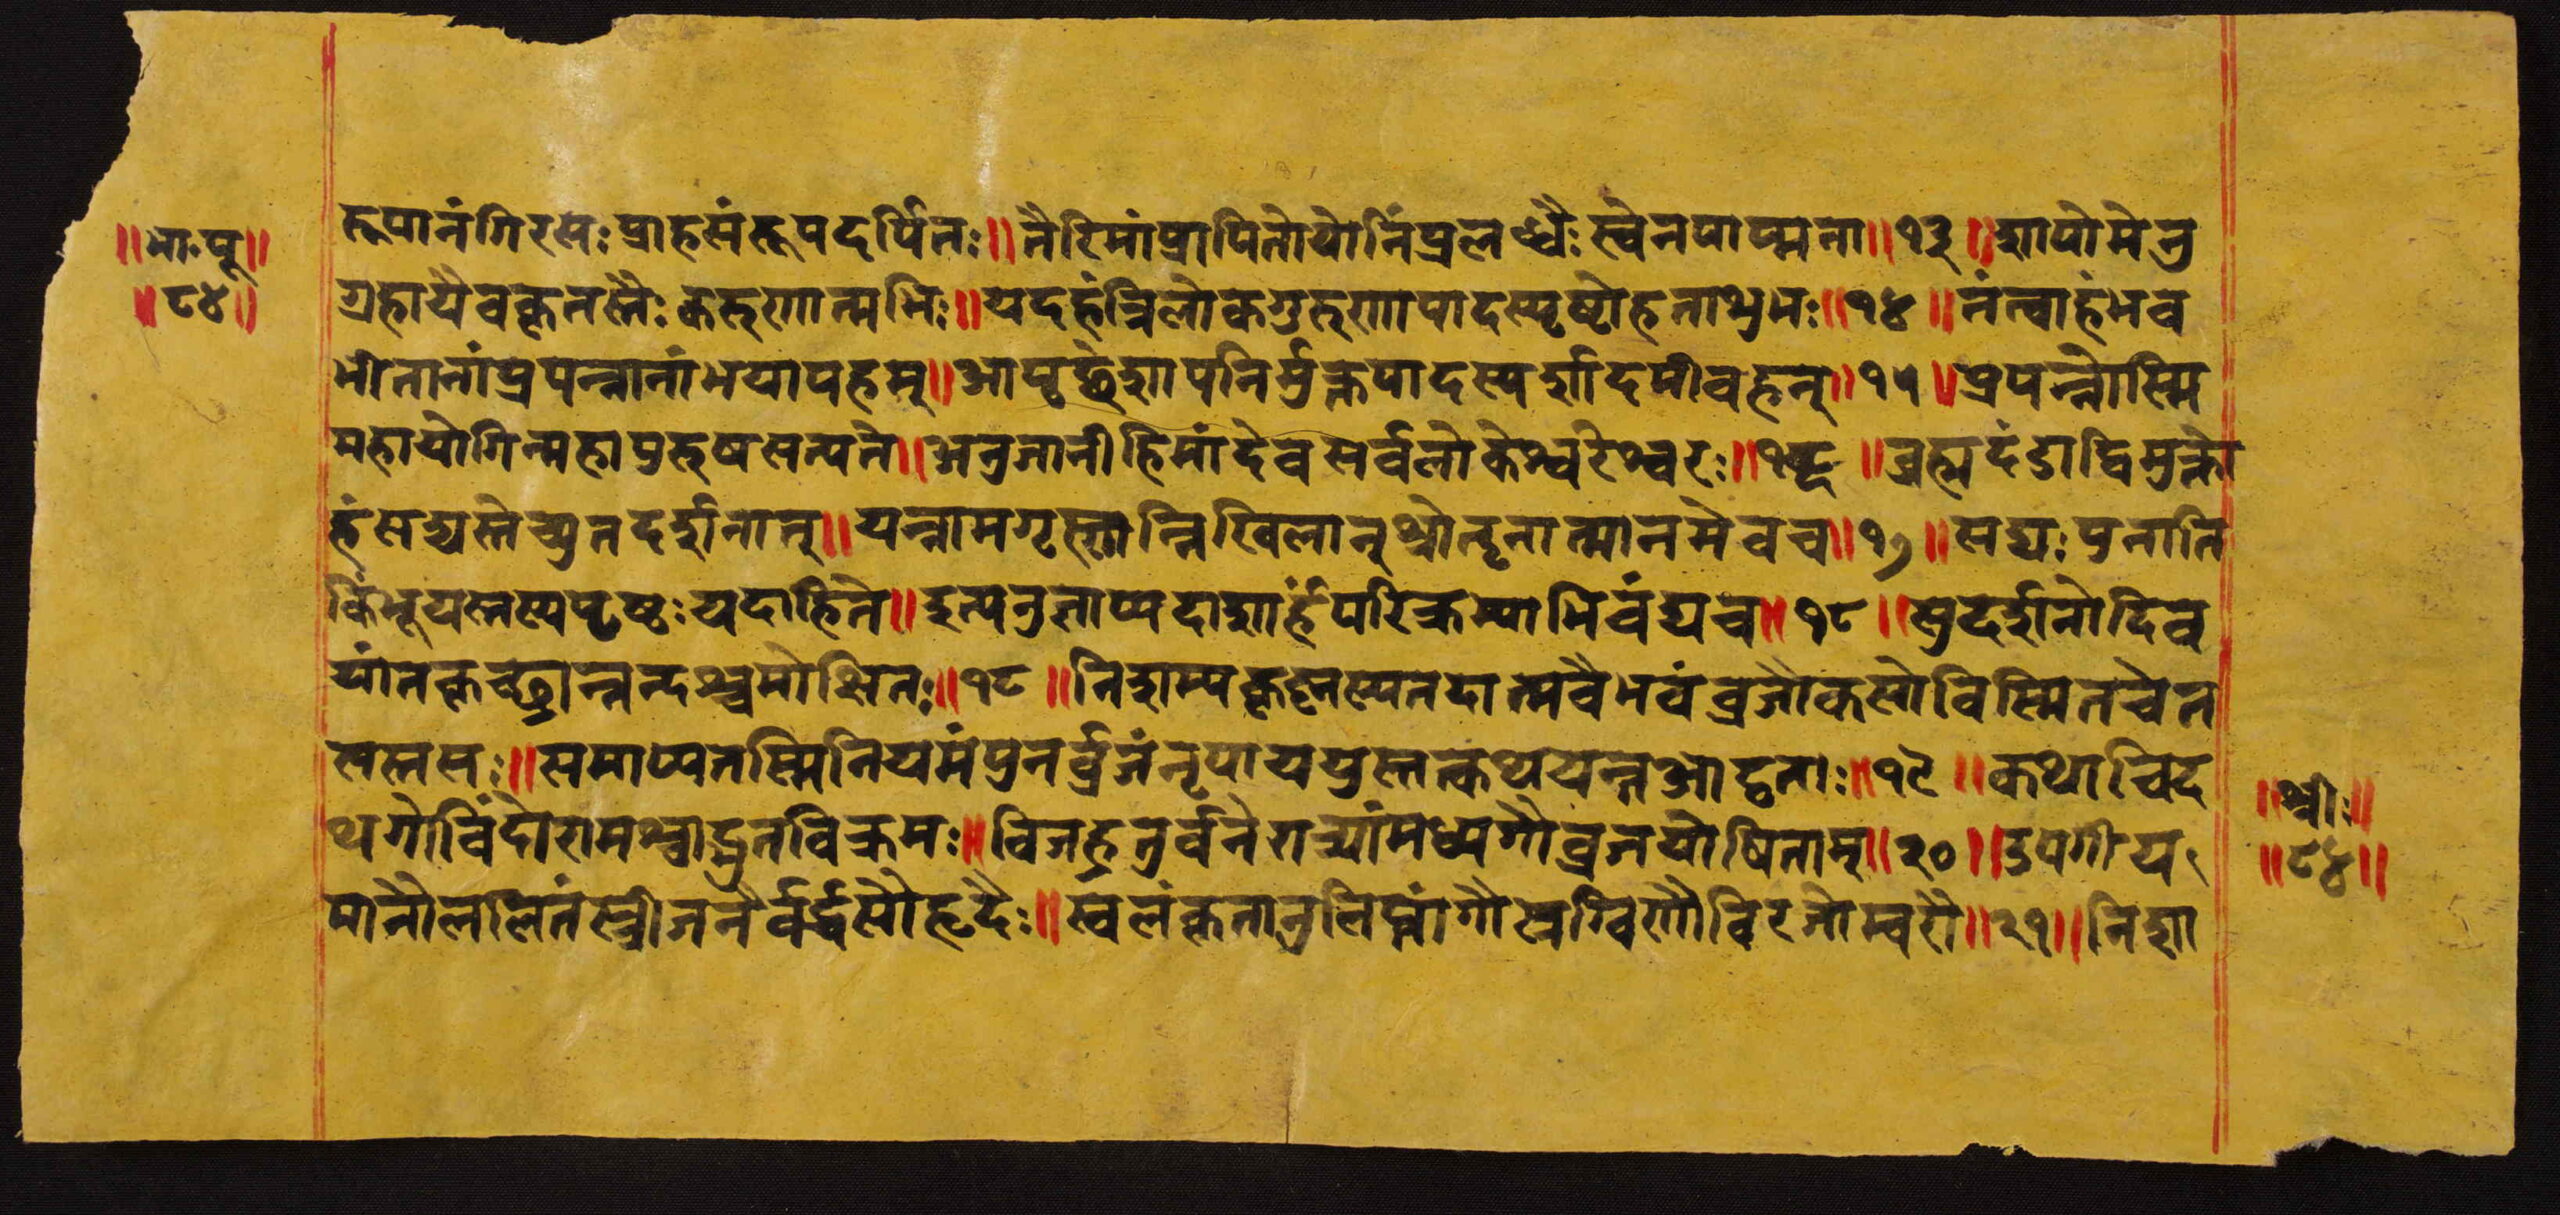 ॥भा॰पू॥
॥८४॥
रूपानंगिरसः प्राहसंरूपदर्पितः॥ तैरिमांप्रापितोयोनिंप्रलब्धैः स्वेनपाप्मना॥१३॥ शापोमेनु
ग्रहायैवकृतस्तैः करुणात्मभिः॥ यदहंत्रिलोकगुरुणापादस्पृष्टोहताशुभः॥१४॥ तंत्वाहंभव
भीतानांप्रपन्नानांभयापहम्॥ आपृछेशापनिर्मुक्तपादस्पर्शादमीवहन्॥१५॥ प्रपन्नोस्मि
महायोगिन्महापुरुषसत्पते॥ अनुजानीहिमांदेवसर्वलोकेश्वरेश्वरः॥१६॥ ब्रह्मदंडाद्विमुक्तो
हंसद्यस्तेच्युतदर्शनात्॥ यन्नामगृह्णान्निखिलान्श्रोतॄनात्मानमेवच॥१७॥ सद्यः पुनाति
किंभूयस्तस्यपृष्ठः यदाहिते॥ इत्यनुज्ञाप्यदाशार्हंपरिक्रम्याभिवंद्यच॥१८॥ सुदर्शनोदिव
यांतकृच्छ्रान्नन्दश्चमोक्षितः॥१८॥ निशम्यकृष्णस्यतदात्मवैभवंव्रजौकसोविस्मितचेत
सस्ततः॥ समाप्यतस्मिनियमंपुनर्व्रजंनृपाययुस्तत्कथयन्तआदृताः॥१९॥ कथाचिद
थगोविंदोरामश्चाद्भुतविक्रमः॥ विजह्रतुर्वनेरात्र्यांमध्यगौव्रजयोषिताम्॥२०॥ उपगीय
मानौललितंस्त्रीजनैर्बद्धसौहृदैः॥ स्वलंकृतानुलिप्तांगौस्रग्विणौविरजोम्बरौ॥२१॥ निशा
॥श्रीः॥
॥८४॥